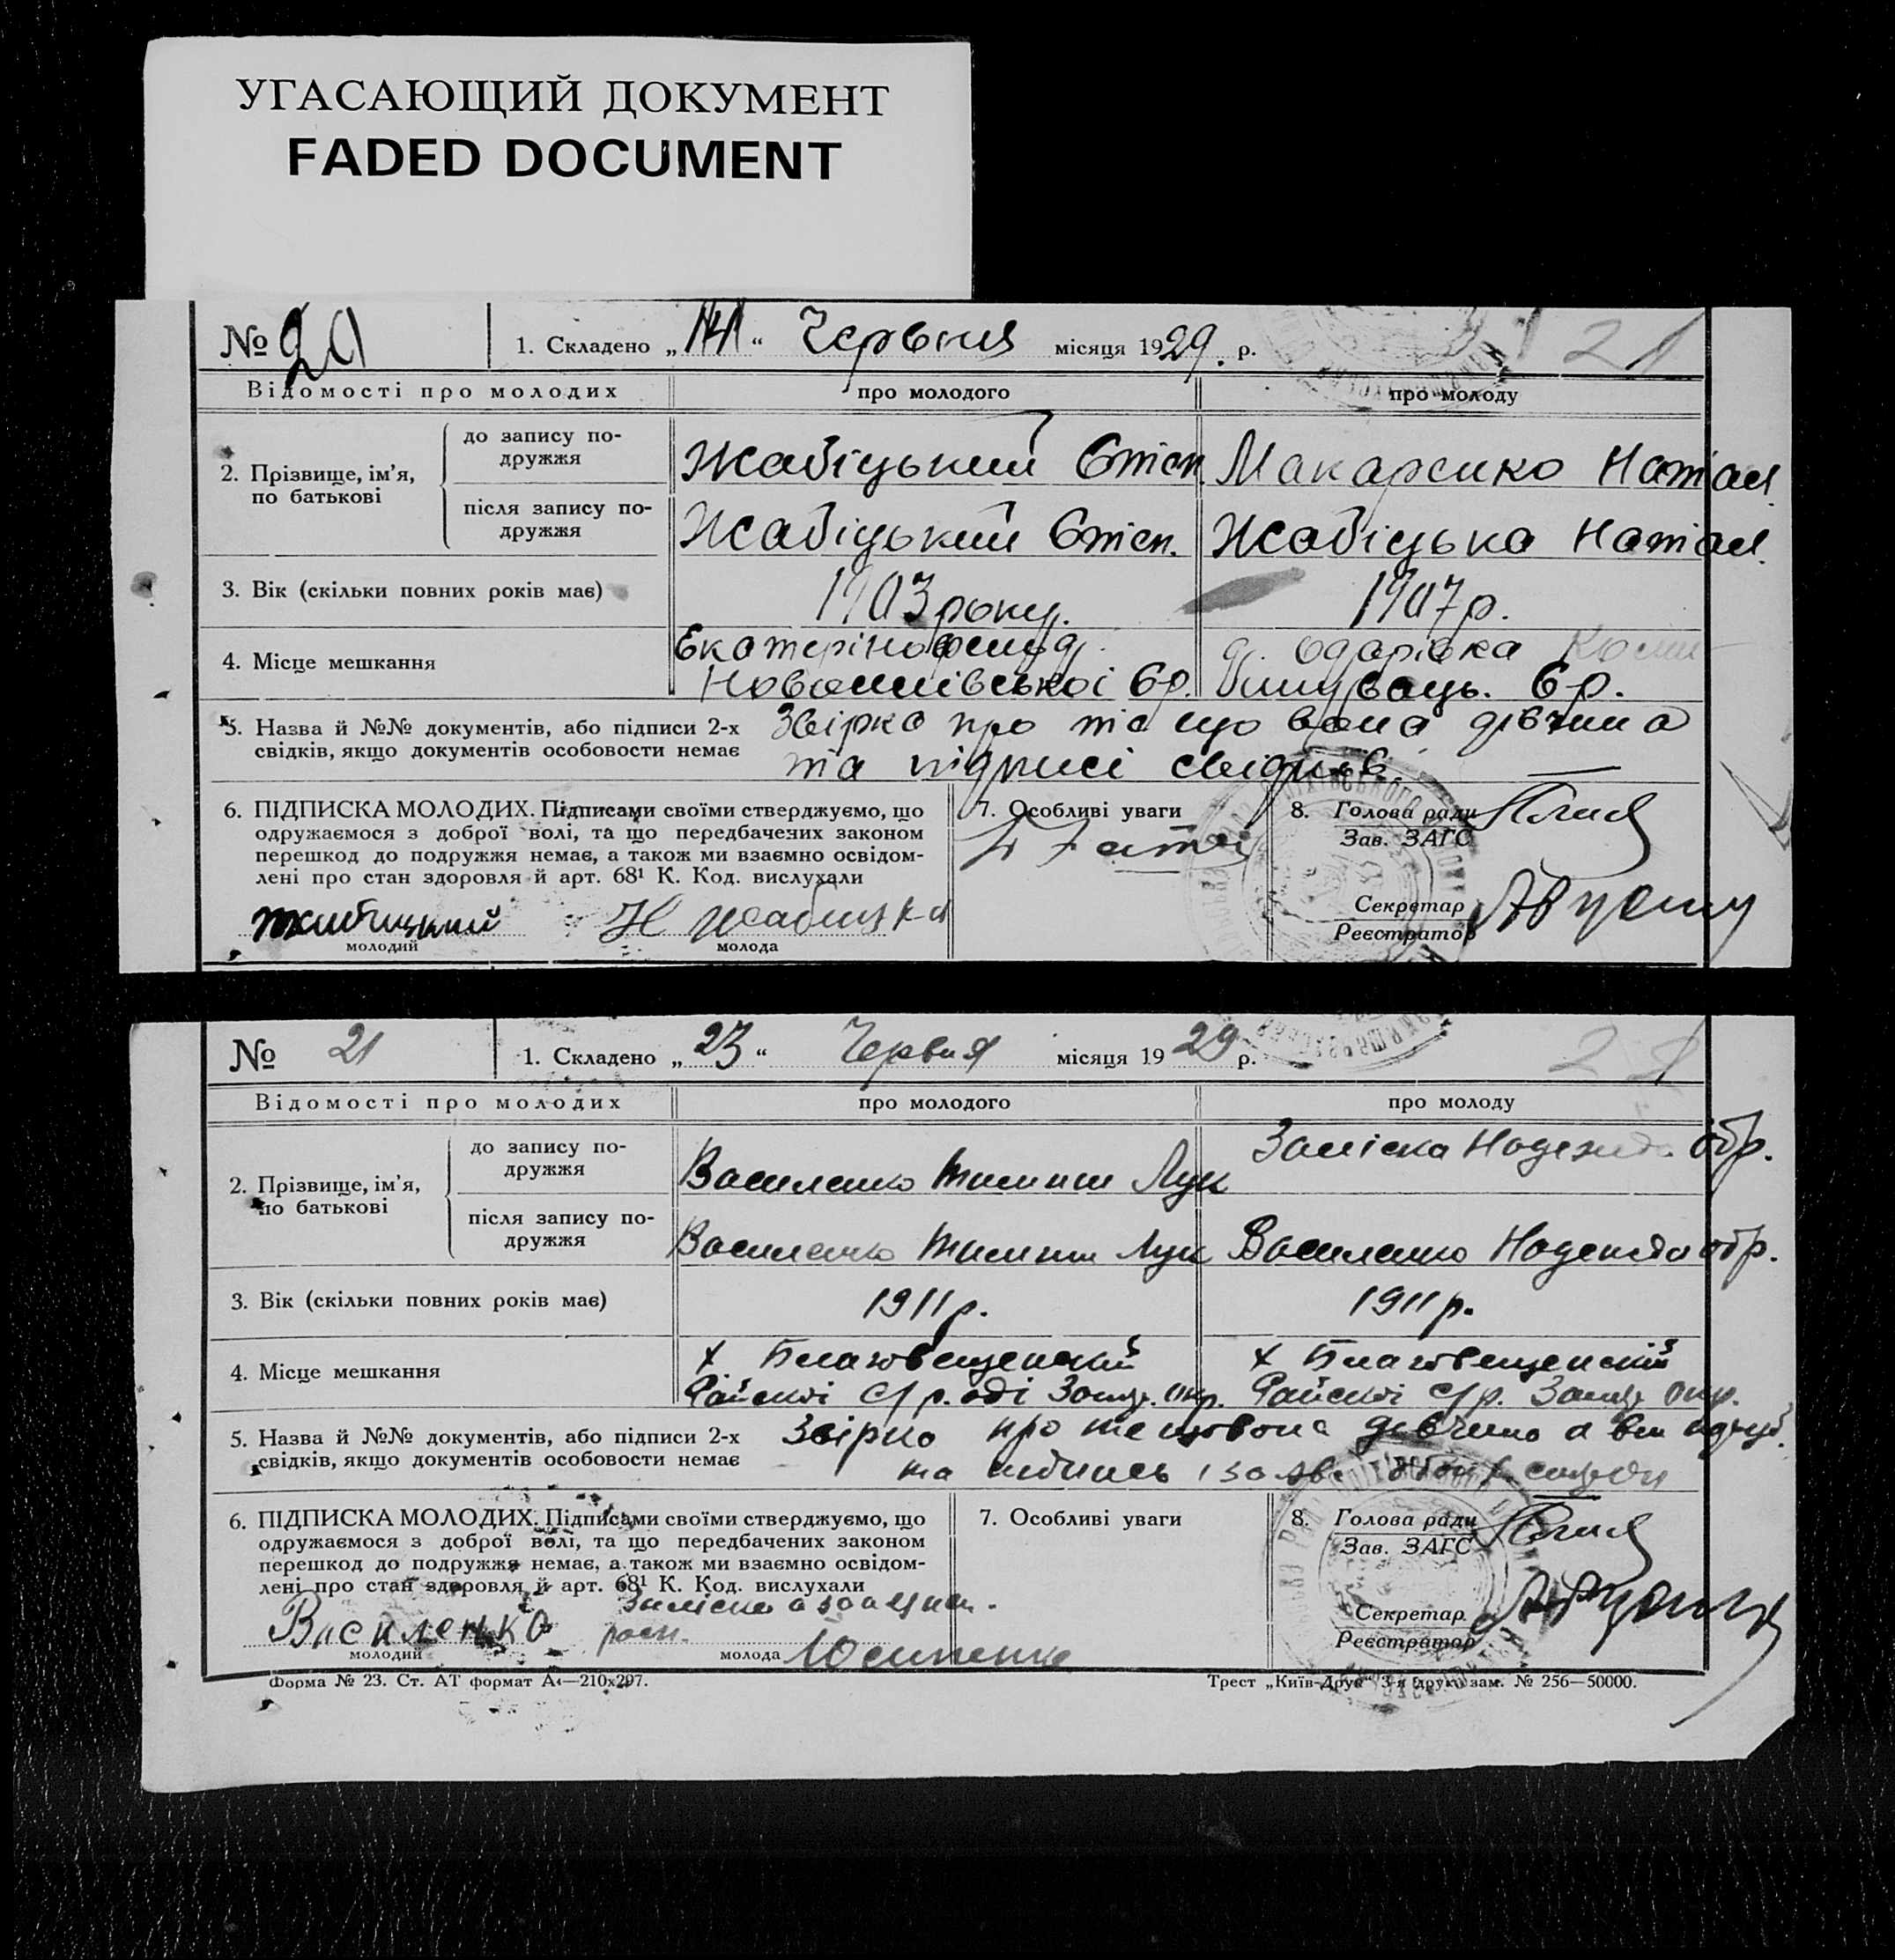 УГАСАЮЩИЙ ДОКУМЕНТ
FADED DOCUMENT
№ 20 1. Складено „14“ Червня місяця 1929. р. 21
Відомості про молодих про молодого про молоду
2. Прізвище, ім’я, по батькові
до запису подружжя Жабіцький Степ. Макаренко Натал.
після запису подружжя Жабіцький Степ. Жабіцька Натал.
3. Вік (скільки повних років має) 1903 року. 1907 р.
4. Місце мешкання
Новомиівської Ср.
Одарівка
Ср.
5. Назва й №№ документів, або підписи 2-х Звірка про те що вона дівчина
свідків, якщо документів особовости немає та підписі свідків.
6. ПІДПИСКА МОЛОДИХ. Підписами своїми стверджуємо, що
одружаємося з доброї волі, та що передбачених законом
перешкод до подружжя немає, а також ми взаємно освідом-
лені про стан здоровля й арт. 68¹ К. Код. вислухали
Жабицкий Н Жабицкая
молодий молода
7. Особливі уваги
8. Голова ради
Зав. ЗАГС
Секретар
Реєстратор
№ 21 1. Складено „23“ Червня місяця 1929 р. 21
Відомості про молодих про молодого про молоду
2. Прізвище, ім’я, по батькові
до запису подружжя Василенко Лук Надежда
після запису подружжя Василенко Лук Василенко Надежда
3. Вік (скільки повних років має) 1911 р. 1911 р.
4. Місце мешкання х Благовещенский х Благовещенский
Райской с/р. Райской с/р.
5. Назва й №№ документів, або підписи 2-х Звірка про те що вона девчина а вин
свідків, якщо документів особовости немає та
6. ПІДПИСКА МОЛОДИХ. Підписами своїми стверджуємо, що
одружаємося з доброї волі, та що передбачених законом
перешкод до подружжя немає, а також ми взаємно освідом-
лені про стан здоровля й арт. 68¹ К. Код. вислухали
Василенко
молодий молода
7. Особливі уваги
8. Голова ради
Зав. ЗАГС
Секретар
Реєстратор
Форма № 23. Ст. АТ формат А₄—210х297. Трест „Київ-Друк“ 3-я друк. зам. № 256—50000.